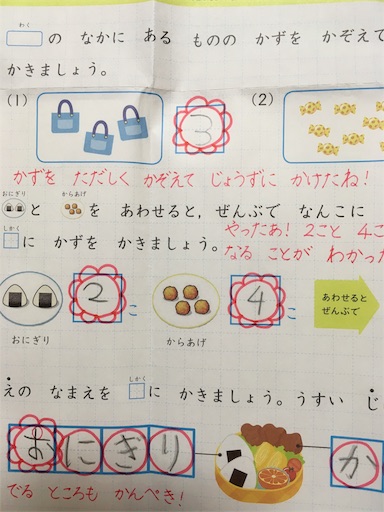 わく
の なかに ある ものの かずを かぞえて
かきましょう。
(1) 3 (2)
かずを ただしく かぞえて じょうずに かけたね!
おにぎり からあげ
と を あわせると, ぜんぶで なんこに
やったあ! 2こと 4こ
しかく
に かずを かきましょう。
なる ことが わかった
2こ 4こ
あわせると
ぜんぶで
おにぎり からあげ
えの なまえを しかく に かきましょう。うすい じ
おにぎり か
でる ところも かんぺき!